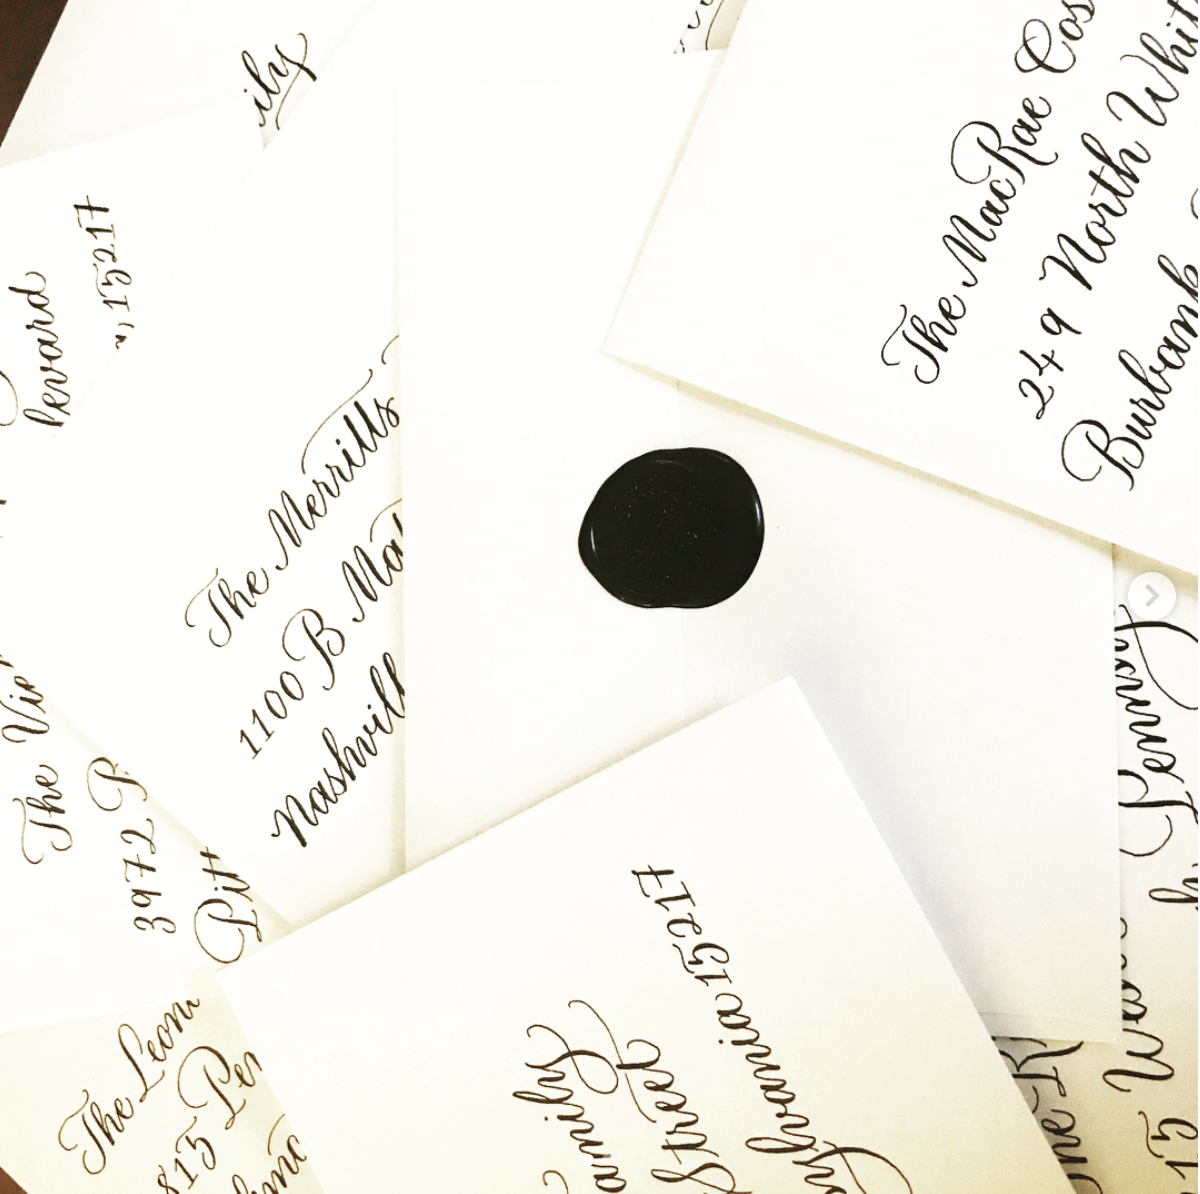 ily
levard
, 15217
The MacRae Cos
249 North Whit
Burbank
The Merrills
1100 B Ma
Nashvill
The Vie
3972 P
Pitt
The Leon
815 Pe
amily
Street
ylvania 15217
Penny
15 We
The R
15